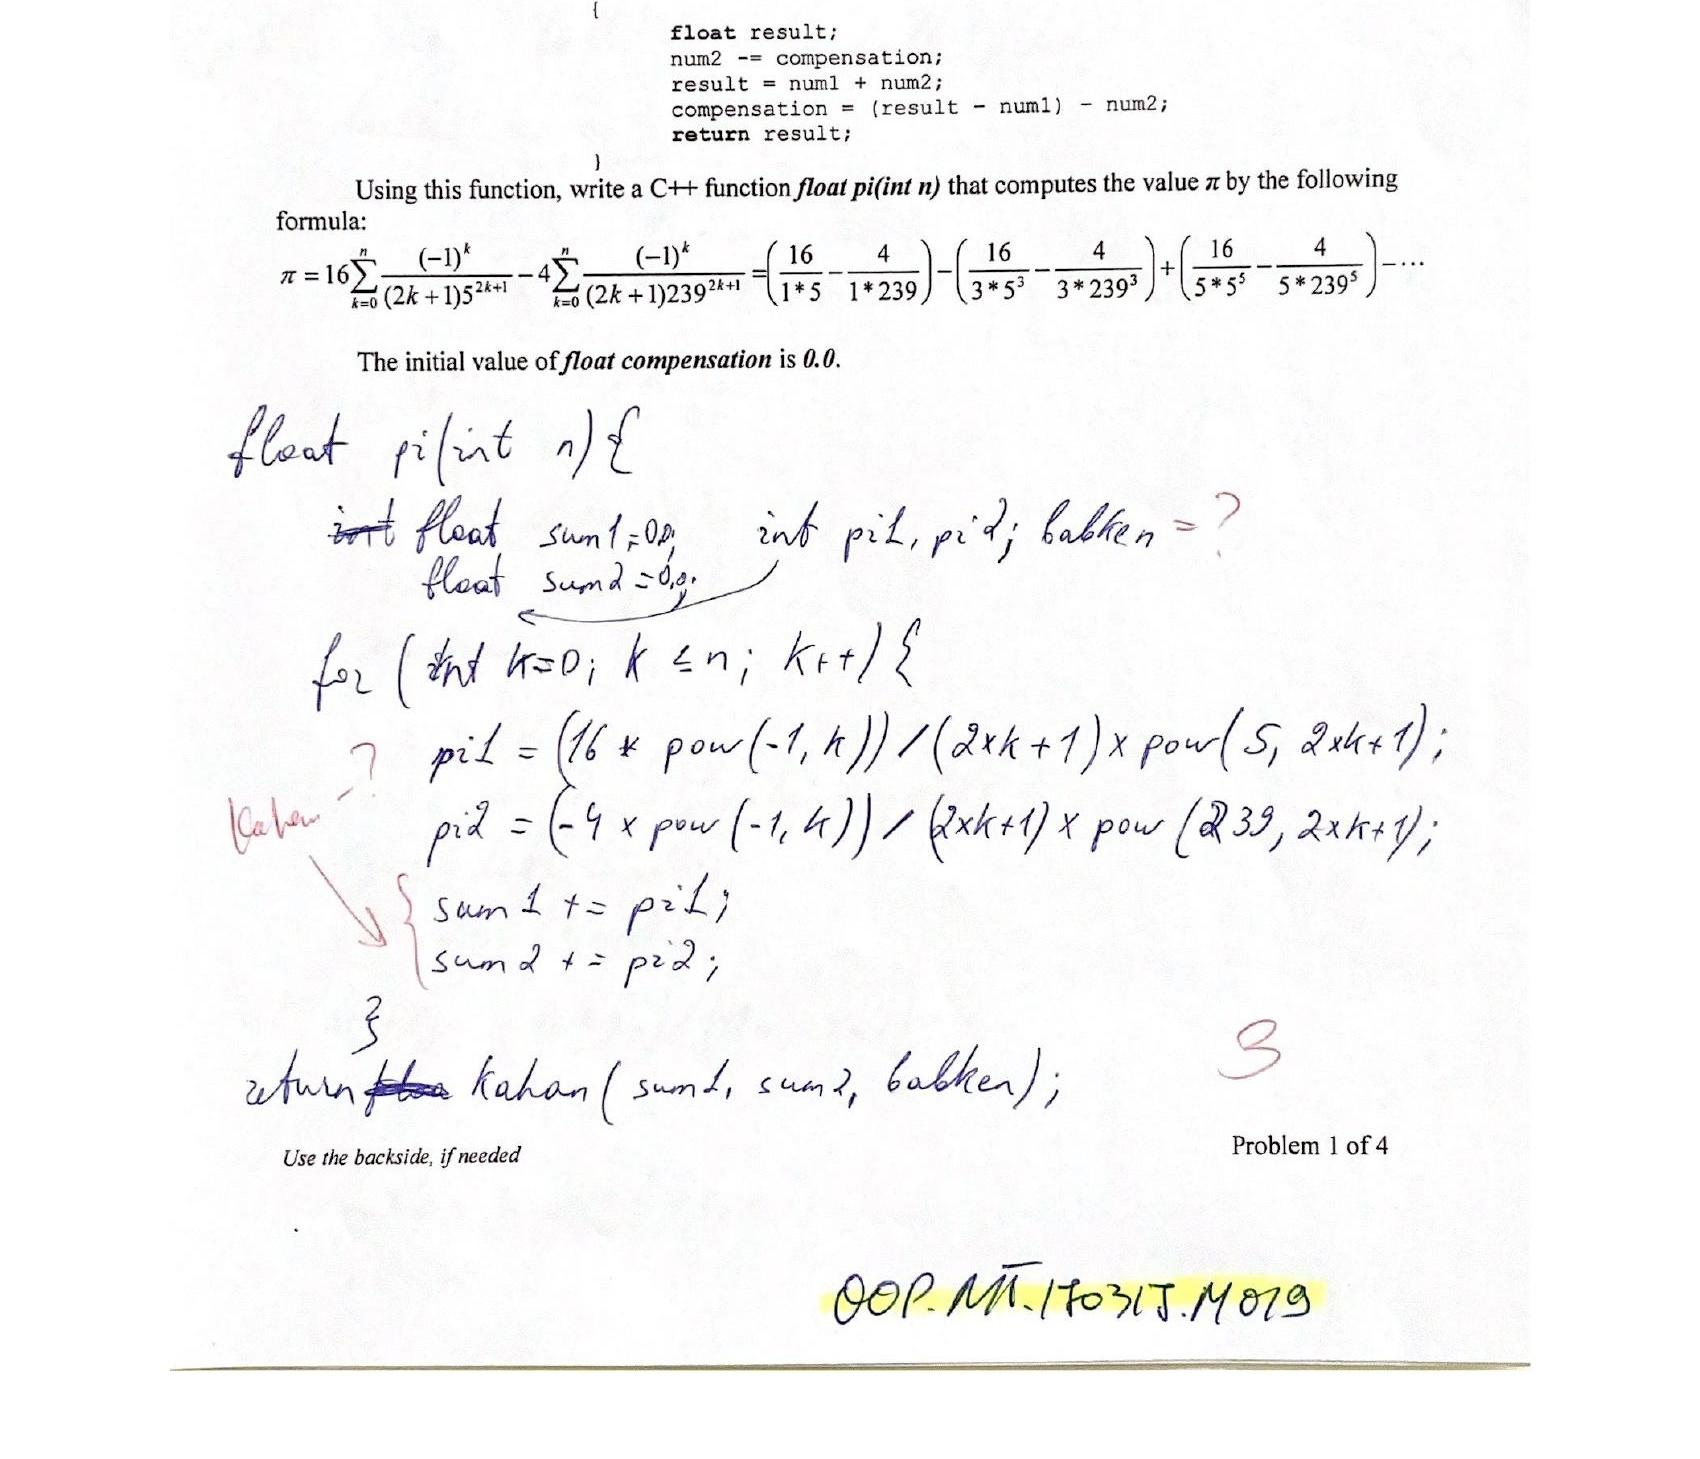 {
float result;
num2 -= compensation;
result = num1 + num2;
compensation = (result - num1) - num2;
return result;
}
Using this function, write a C++ function float pi(int n) that computes the value π by the following
formula:
π = 16 ∑_{k=0}^{n} (-1)^k / ((2k+1)5^{2k+1}) - 4 ∑_{k=0}^{n} (-1)^k / ((2k+1)239^{2k+1}) = (16/(1*5) - 4/(1*239)) - (16/(3*5^3) - 4/(3*239^3)) + (16/(5*5^5) - 4/(5*239^5)) - ...
The initial value of float compensation is 0.0.
float pi(int n) {
int float sum1=0.0; int pi1, pi2; babken = ?
float sum2 = 0.0;
for (int k=0; k ≤ n; k++) {
? pi1 = (16 * pow(-1, k)) / (2xk+1) x pow(5, 2xk+1);
Kahan
pi2 = (-4 x pow(-1, k)) / (2xk+1) x pow(239, 2xk+1);
{ sum1 += pi1;
sum2 += pi2;
}
3
return kahan(sum1, sum2, babken);
Use the backside, if needed
Problem 1 of 4
OOP.MT.170315.M019